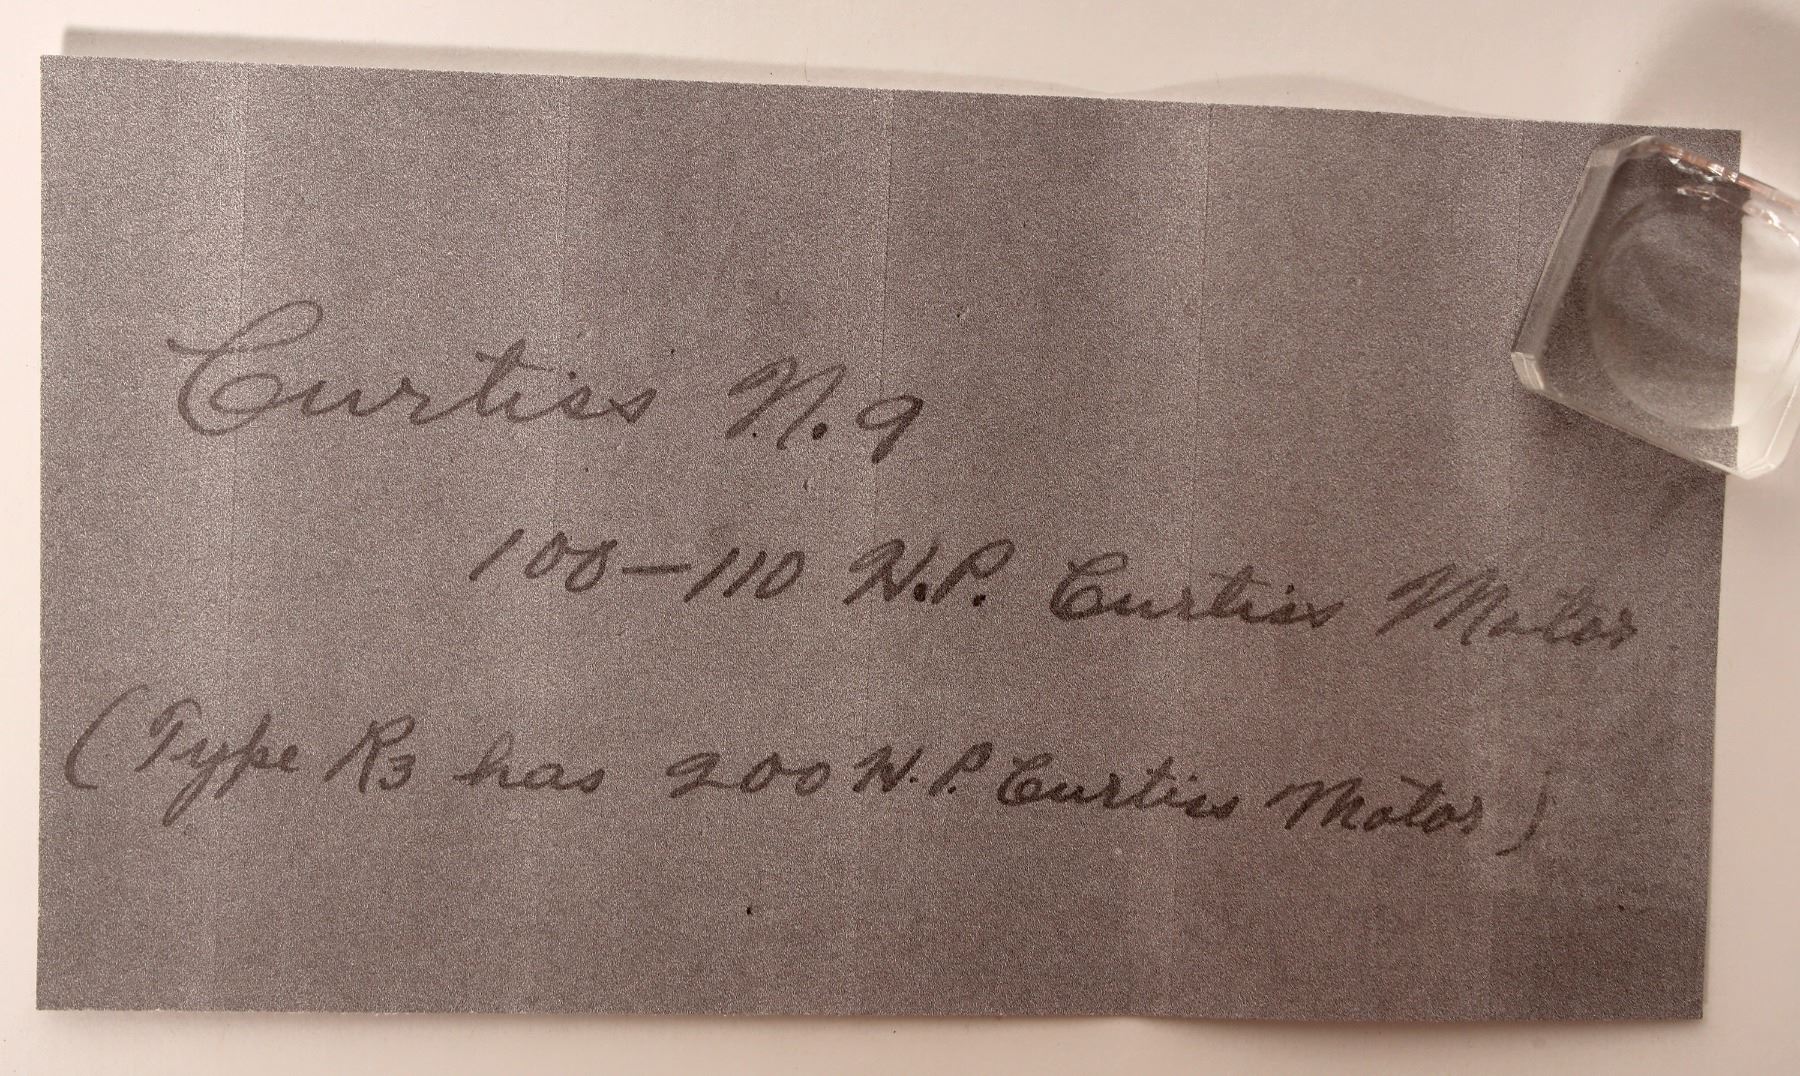 Curtiss N.9
100-110 H.P. Curtiss Motor
(Type R3 has 200 H.P. Curtiss Motor)